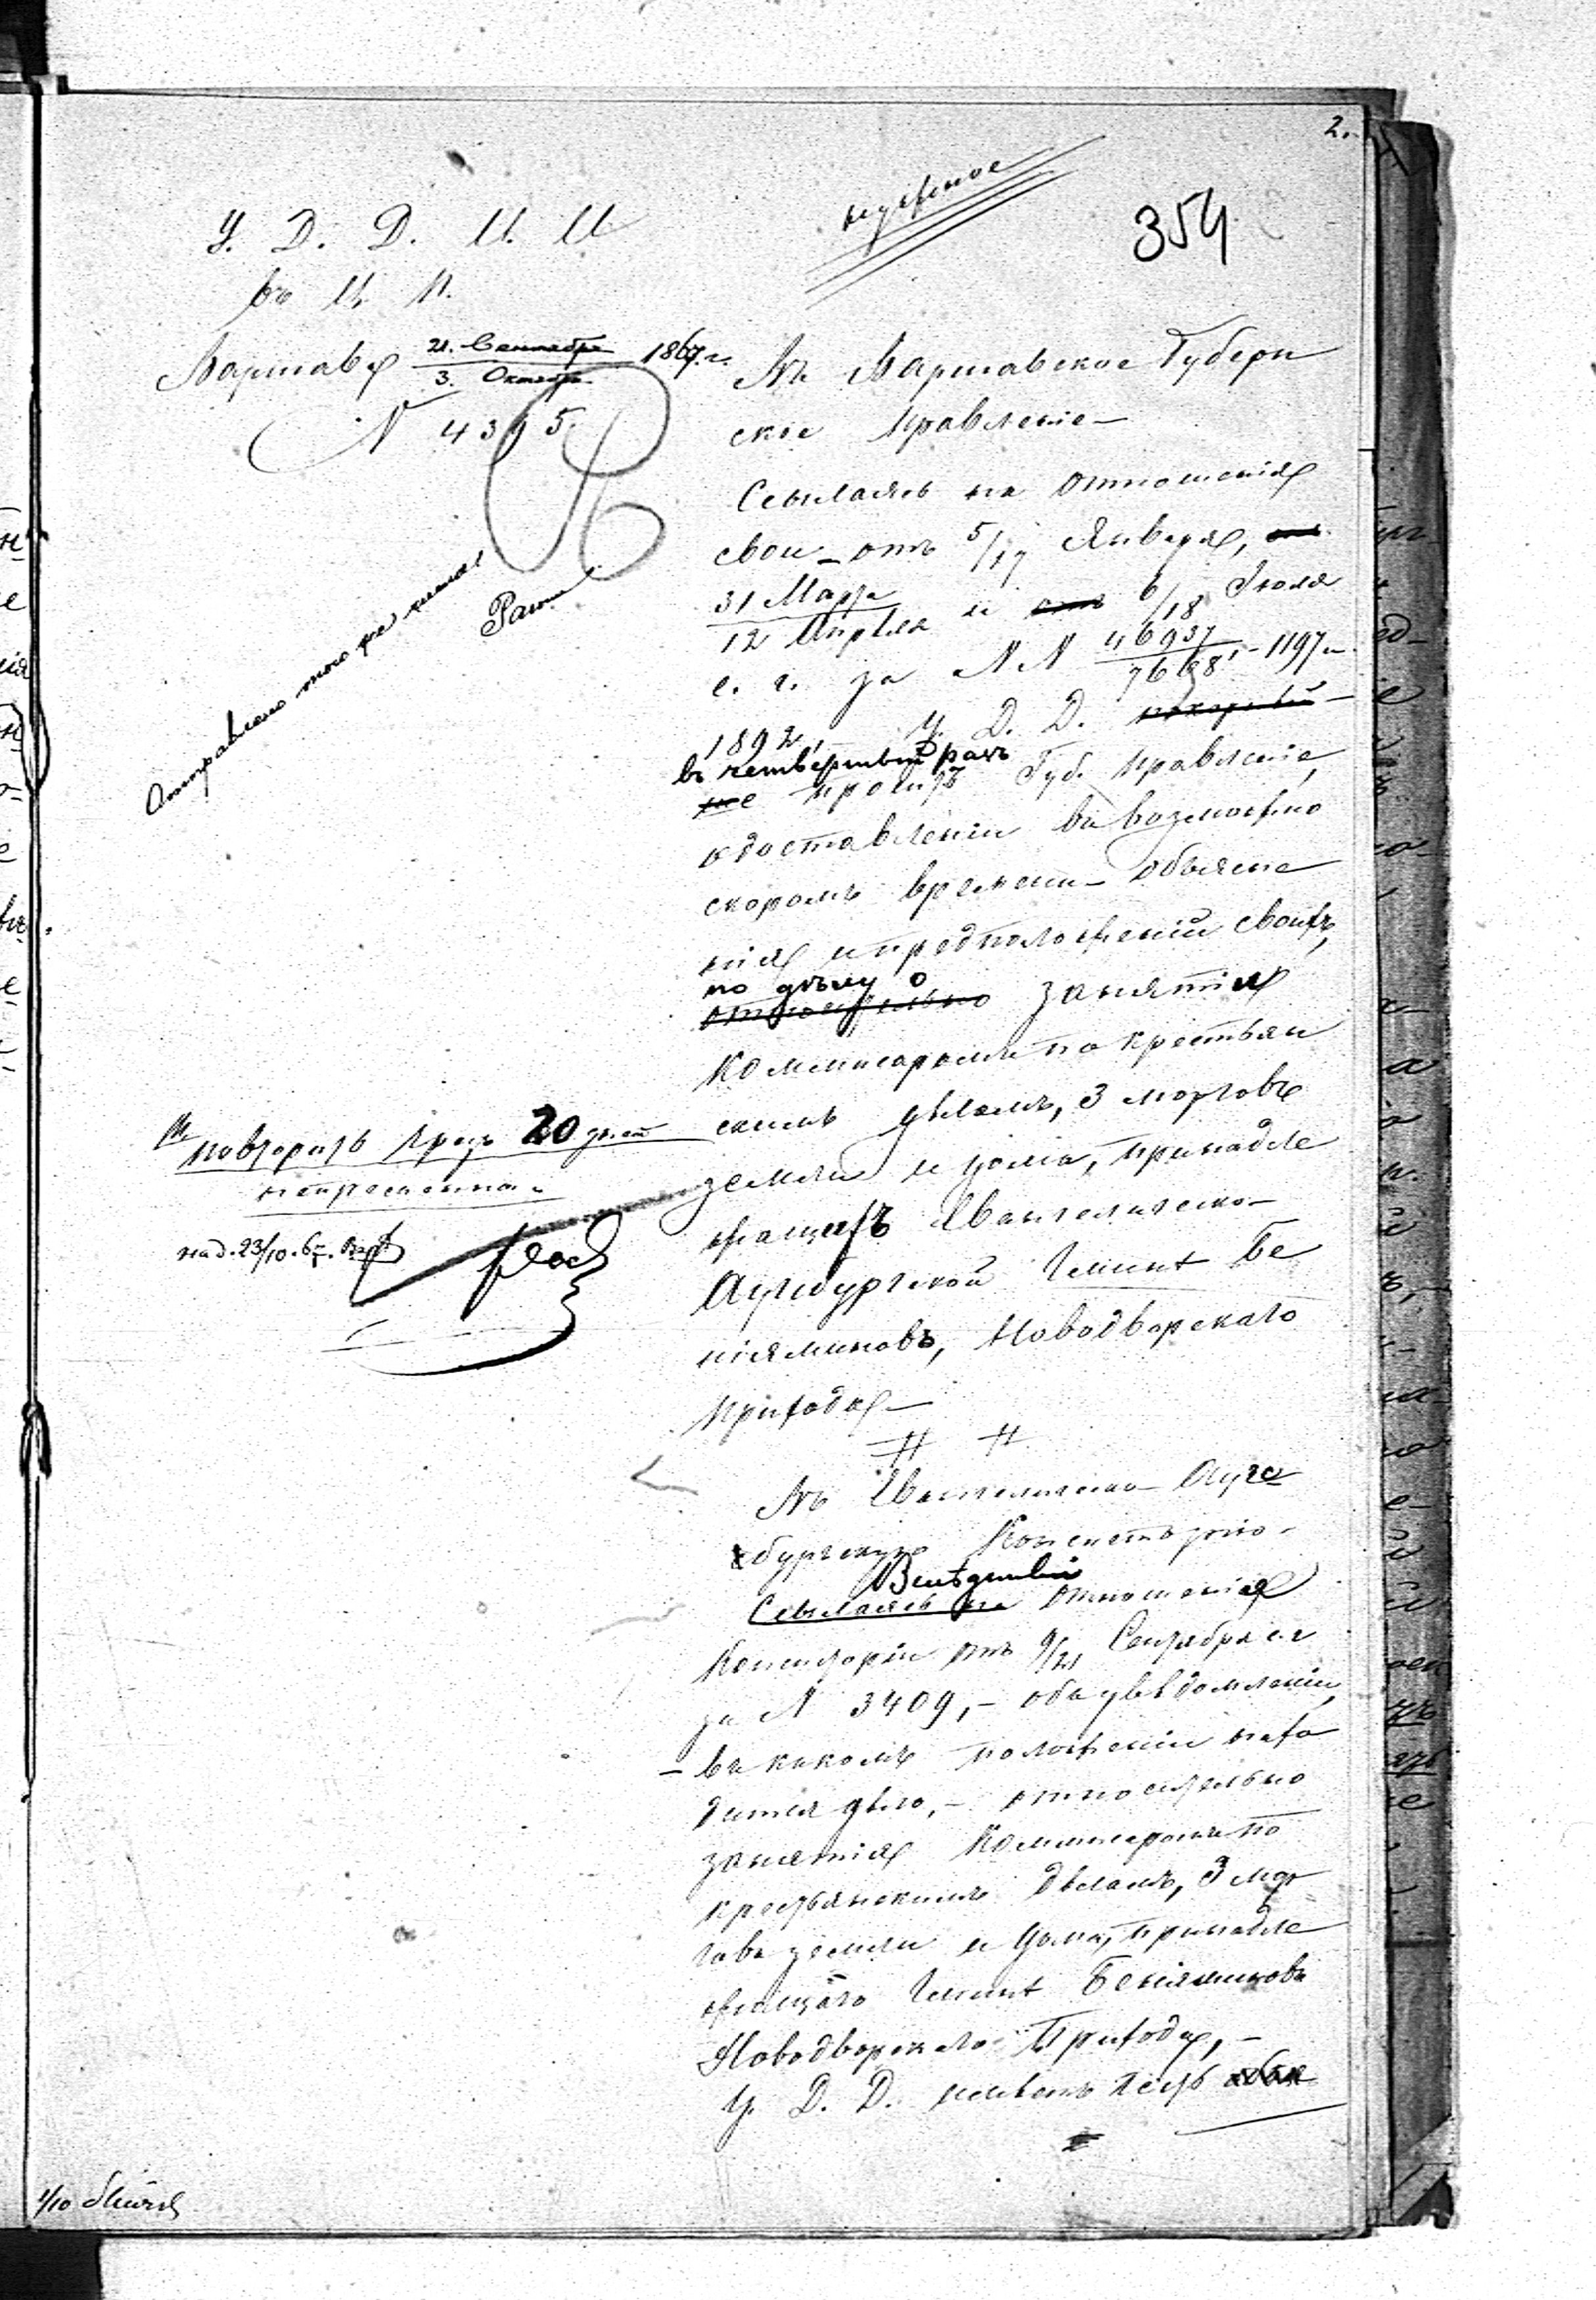 2.
нужное
354
У. Д. Д. И. И
въ Ц. П.
Варшава 21. Сентября / 3. Октября 1867 г.
N 4395
Въ Варшавское Губерн
ское Правленіе
Ссылаясь на отношенія
свои отъ 5/17 Января, отъ
31 Марта / 12 Апрѣля и отъ 6/18 Іюля
с. г. за NN 46937 / 7668, 1197 и
1892, У. Д. Д. покорнѣй
въ четвертый разъ
ше проситъ Губ. Правленіе,
о доставленіи въ возможно
скоромъ времени объясне
нія и предположеній своихъ,
по дѣлу о
относительно занятія
Коммисаромъ по крестьян
скимъ дѣламъ, 3 морговъ
земли и дома, принадле
жащихъ Евангелическо-
Аугсбургской Гминѣ Бе
ніяминовъ, Новодворскаго
прихода
Отправлено того же числа
повторить чрезъ 20 дней
над. 23/10. 67.
Въ Евангелическо-Аугс
бургскую Консисторію
Вслѣдствіе
Ссылаясь на отношенія
Консисторіи отъ 9/21 Сентября с. г
за N 3409, - объ увѣдомленіи,
въ какомъ положеніи нахо
дится дѣло, - относительно
занятія Коммисаромъ по
крестьянскимъ дѣламъ, 3 мор
говъ земли и дома, принадле
жащаго Гминѣ Беніяминовъ
Новодворскаго Прихода, -
У. Д. Д. имѣетъ честь
1/10